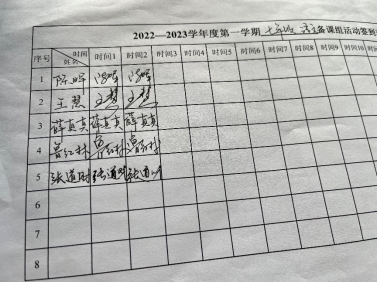 2022—2023学年度第一学期 七年级 语文 备课组活动签到
序号 时间 姓名 时间1 时间2 时间3 时间4 时间5 时间6 时间7 时间8 时间9 时间10
1 陈晔 陈晔 陈晔
2 王慧 王慧 王慧
3 薛真真 薛真真 薛真真
4 鲁红林 鲁红林 鲁红林
5 张道明 张道明 张道明
6
7
8